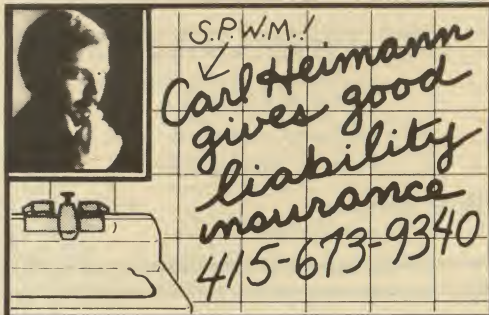 S.P.W.M.!
Carl Heimann
gives good
liability
insurance
415-673-9340